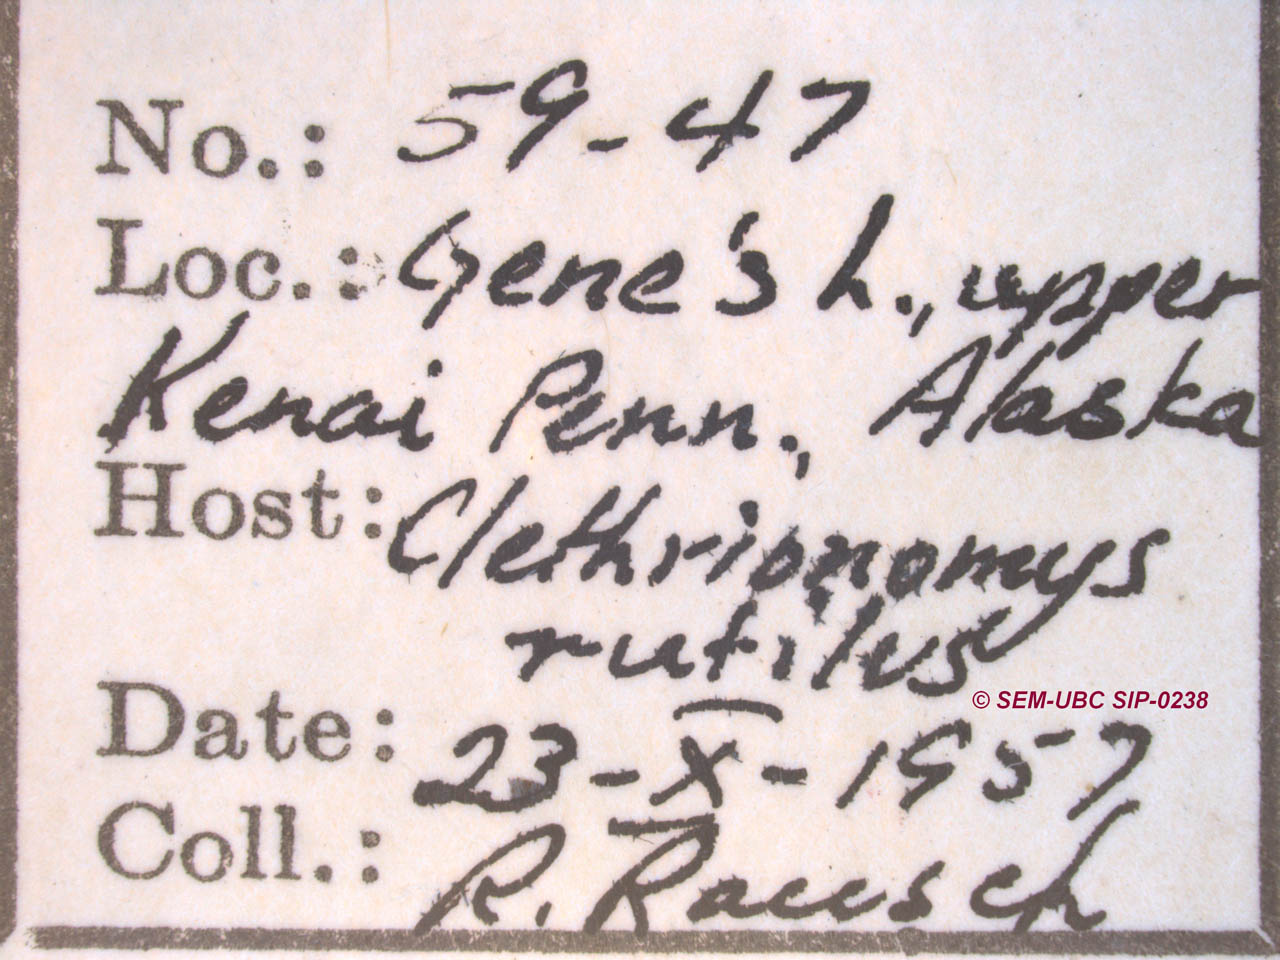 No.: 59-47
Loc.: Gene's L., upper
Kenai Penn., Alaska
Host: Clethrionomys
rutilus
© SEM-UBC SIP-0238
Date: 23-X-1957
Coll.: R. Rausch